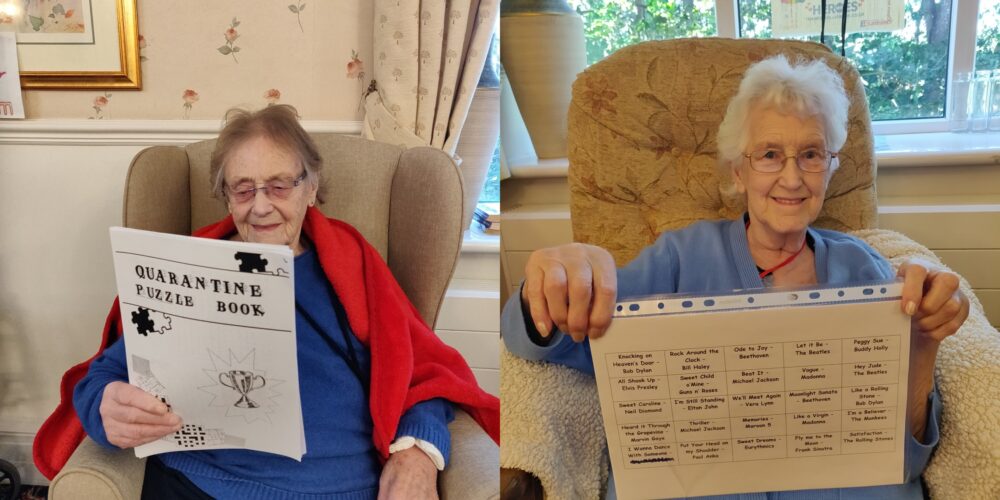 QUARANTINE
PUZZLE BOOK
HEROES
Knocking on
Heaven's Door -
Bob Dylan
Rock Around the
Clock -
Bill Haley
Ode to Joy -
Beethoven
Let it Be -
The Beatles
Peggy Sue -
Buddy Holly
All Shook Up -
Elvis Presley
Sweet Child
o'Mine -
Guns n' Roses
Beat It -
Michael Jackson
Vogue -
Madonna
Hey Jude -
The Beatles
Sweet Caroline -
Neil Diamond
I'm Still Standing
- Elton John
We'll Meet Again
- Vera Lynn
Moonlight Sonata
- Beethoven
Like a Rolling
Stone -
Bob Dylan
Heard it Through
the Grapevine
Marvin Gaye
Thriller -
Michael Jackson
Memories -
Maroon 5
Like a Virgin -
Madonna
I'm a Believer -
The Monkees
I Wanna Dance
With Someone
Put Your Head on
my Shoulder -
Paul Anka
Sweet Dreams -
Eurythmics
Fly me to the
Moon -
Frank Sinatra
Satisfaction -
The Rolling Stones